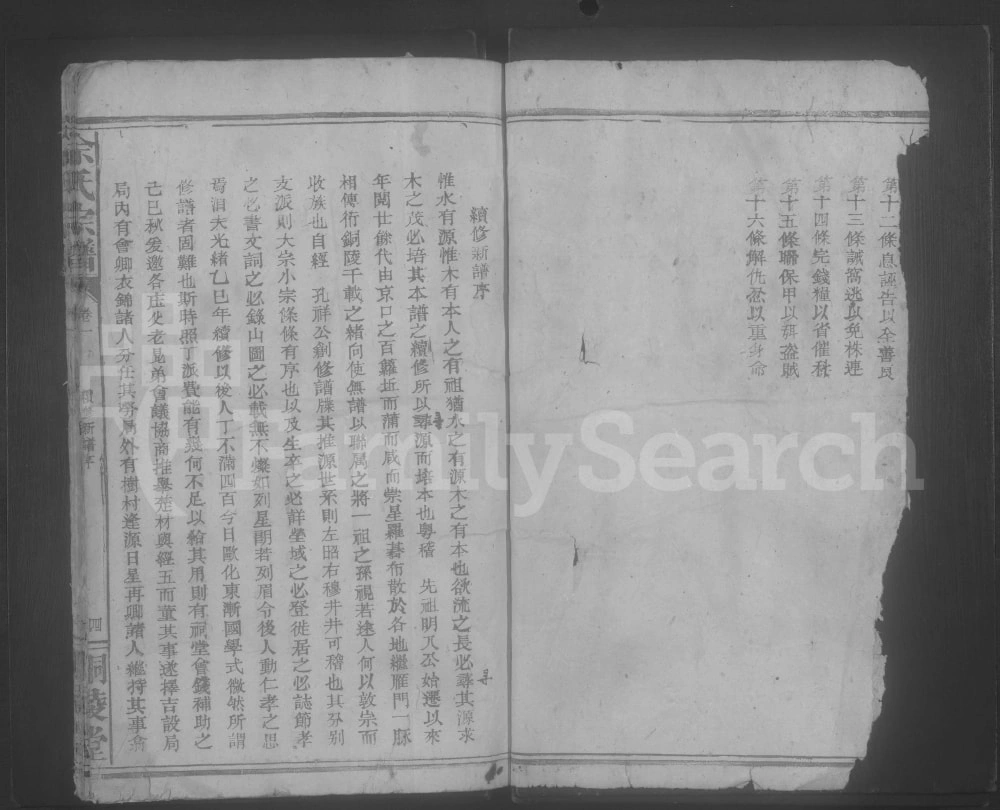 第十二條息誣告以全善良
第十三條誡窩逃以免株連
第十四條完錢糧以省催科
第十五條聯保甲以弭盜賊
第十六條解仇忿以重身命
續修新譜序
惟水有源惟木有本人之有祖猶水之有源木之有本也欲流之長必尋其源求
木之茂必培其本譜之續修所以尋源而培本也粵稽 先祖明乃公始遷以來
年閱世餘代由京口之百籮坵而蒲而咸而崇星羅碁布散於各地繼雁門一脉
相傳衍銅陵千載之緒向使無譜以聯屬之將一祖之孫視若途人何以敦宗而
收族也自經 孔祥公創修譜牒其推源世系則左昭右穆井井可稽也其分別
支派則大宗小宗條條有序也以及生卒之必詳塋域之必登徙居之必誌節孝
之必書文詞之必錄山圖之必載無不燦如列星朗若列眉令後人動仁孝之思
焉洎夫光緒乙巳年續修以後人丁不滿四百今日歐化東漸國學式微然所謂
修譜者固難也斯時照丁派費能有幾何不足以給其用則有祠堂會錢補助之
己巳秋爰邀各庄父老昆弟會議協商推舉楚材與經五而董其事遂擇吉設局
局內有會卿衣錦諸人分任其勞局外有樹村逢源日星再卿諸人維持其事俞
氏宗譜
卷一
續修新譜序
四
銅陵堂
FamilySearch